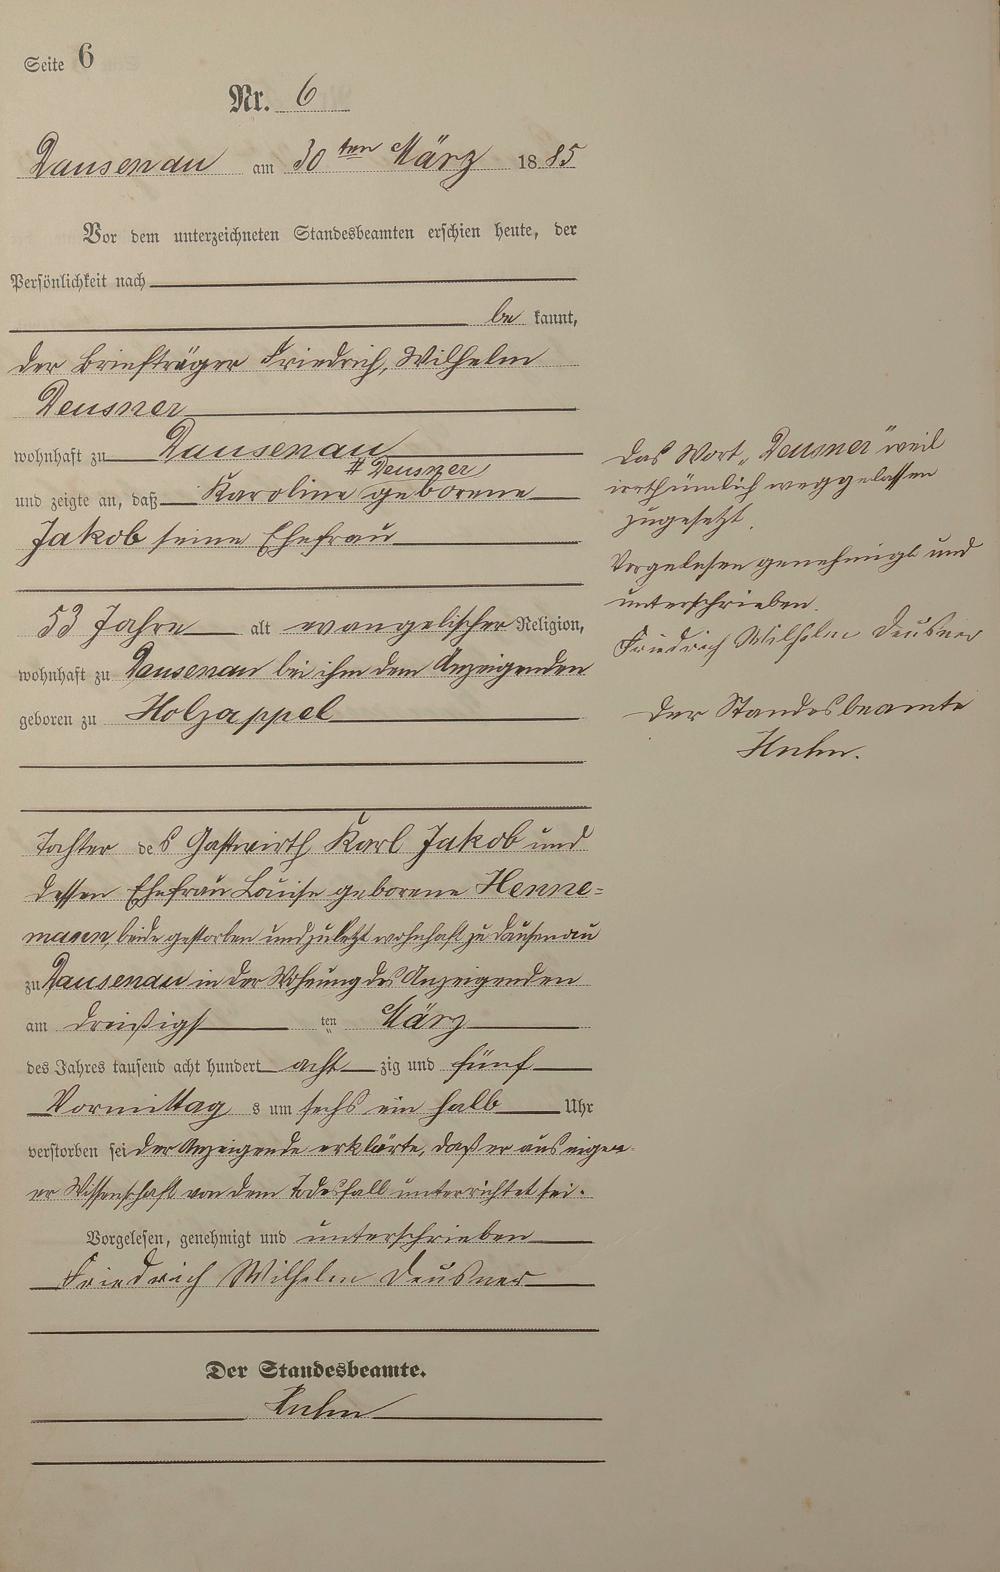 Seite 6
Nr. 6
Dausenau am 30ten März 1885
Vor dem unterzeichneten Standesbeamten erschien heute, der
Persönlichkeit nach
be kannt,
der Briefträger Friedrich, Wilhelm
Deusner
wohnhaft zu Dausenau
# Deusner
und zeigte an, daß Karoline geborene
Jakob seine Ehefrau
53 Jahre alt evangelischer Religion,
wohnhaft zu Dausenau bei ihm dem Anzeigenden
geboren zu Holzappel
Tochter des Gastwirth Karl Jakob und
dessen Ehefrau Louise geborene Henne=
mann, beide gestorben und zuletzt wohnhaft zu Dausenau
zu Dausenau in der Wohnung des Anzeigenden
am dreißigst ten März
des Jahres tausend acht hundert acht zig und fünf
Vormittag s um sechs ein halb Uhr
verstorben sei der Anzeigende erklärte, daß er aus eigen-
er Wissenschaft von dem Todesfall unterrichtet sei.
Vorgelesen, genehmigt und unterschrieben
Friedrich Wilhelm Deusner
Der Standesbeamte.
Das Wort "Deusner" weil
irrthümlich weggelassen
zugesetzt.
Vorgelesen genehmigt und
unterschrieben.
Friedrich Wilhelm Deusner
Der Standesbeamte